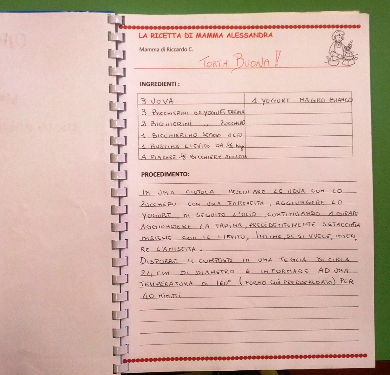 LA RICETTA DI MAMMA ALESSANDRA
Mamma di Riccardo C.
TORTA BUONA!
INGREDIENTI:
3 UOVA
1 YOGURT MAGRO BIANCO
3 BICCHIERINI DI YOGURT FARINA
2 BICCHIERINI " ZUCCHERO
1 BICCHIERINO OLIO
1 BUSTINA LIEVITO
BICCHIERE
PROCEDIMENTO:
IN UNA CIOTOLA MESCOLARE LE UOVA CON LO
ZUCCHERO CON UNA FORCHETTA, AGGIUNGERE LO
YOGURT, DI SEGUITO L'OLIO, CONTINUANDO A GIRARE
AGGIUNGERE LA FARINA, PRECEDENTEMENTE SETACCIATA
INSIEME CON IL LIEVITO, INFINE, SE SI VUOLE,
RE
DISPORRE IL COMPOSTO IN UNA TEGLIA DI CIRCA
24 CM DI DIAMETRO E INFORNARE AD UNA
TEMPERATURA DI 180° (FORNO GIÀ PRERISCALDATO) PER
40 MINUTI